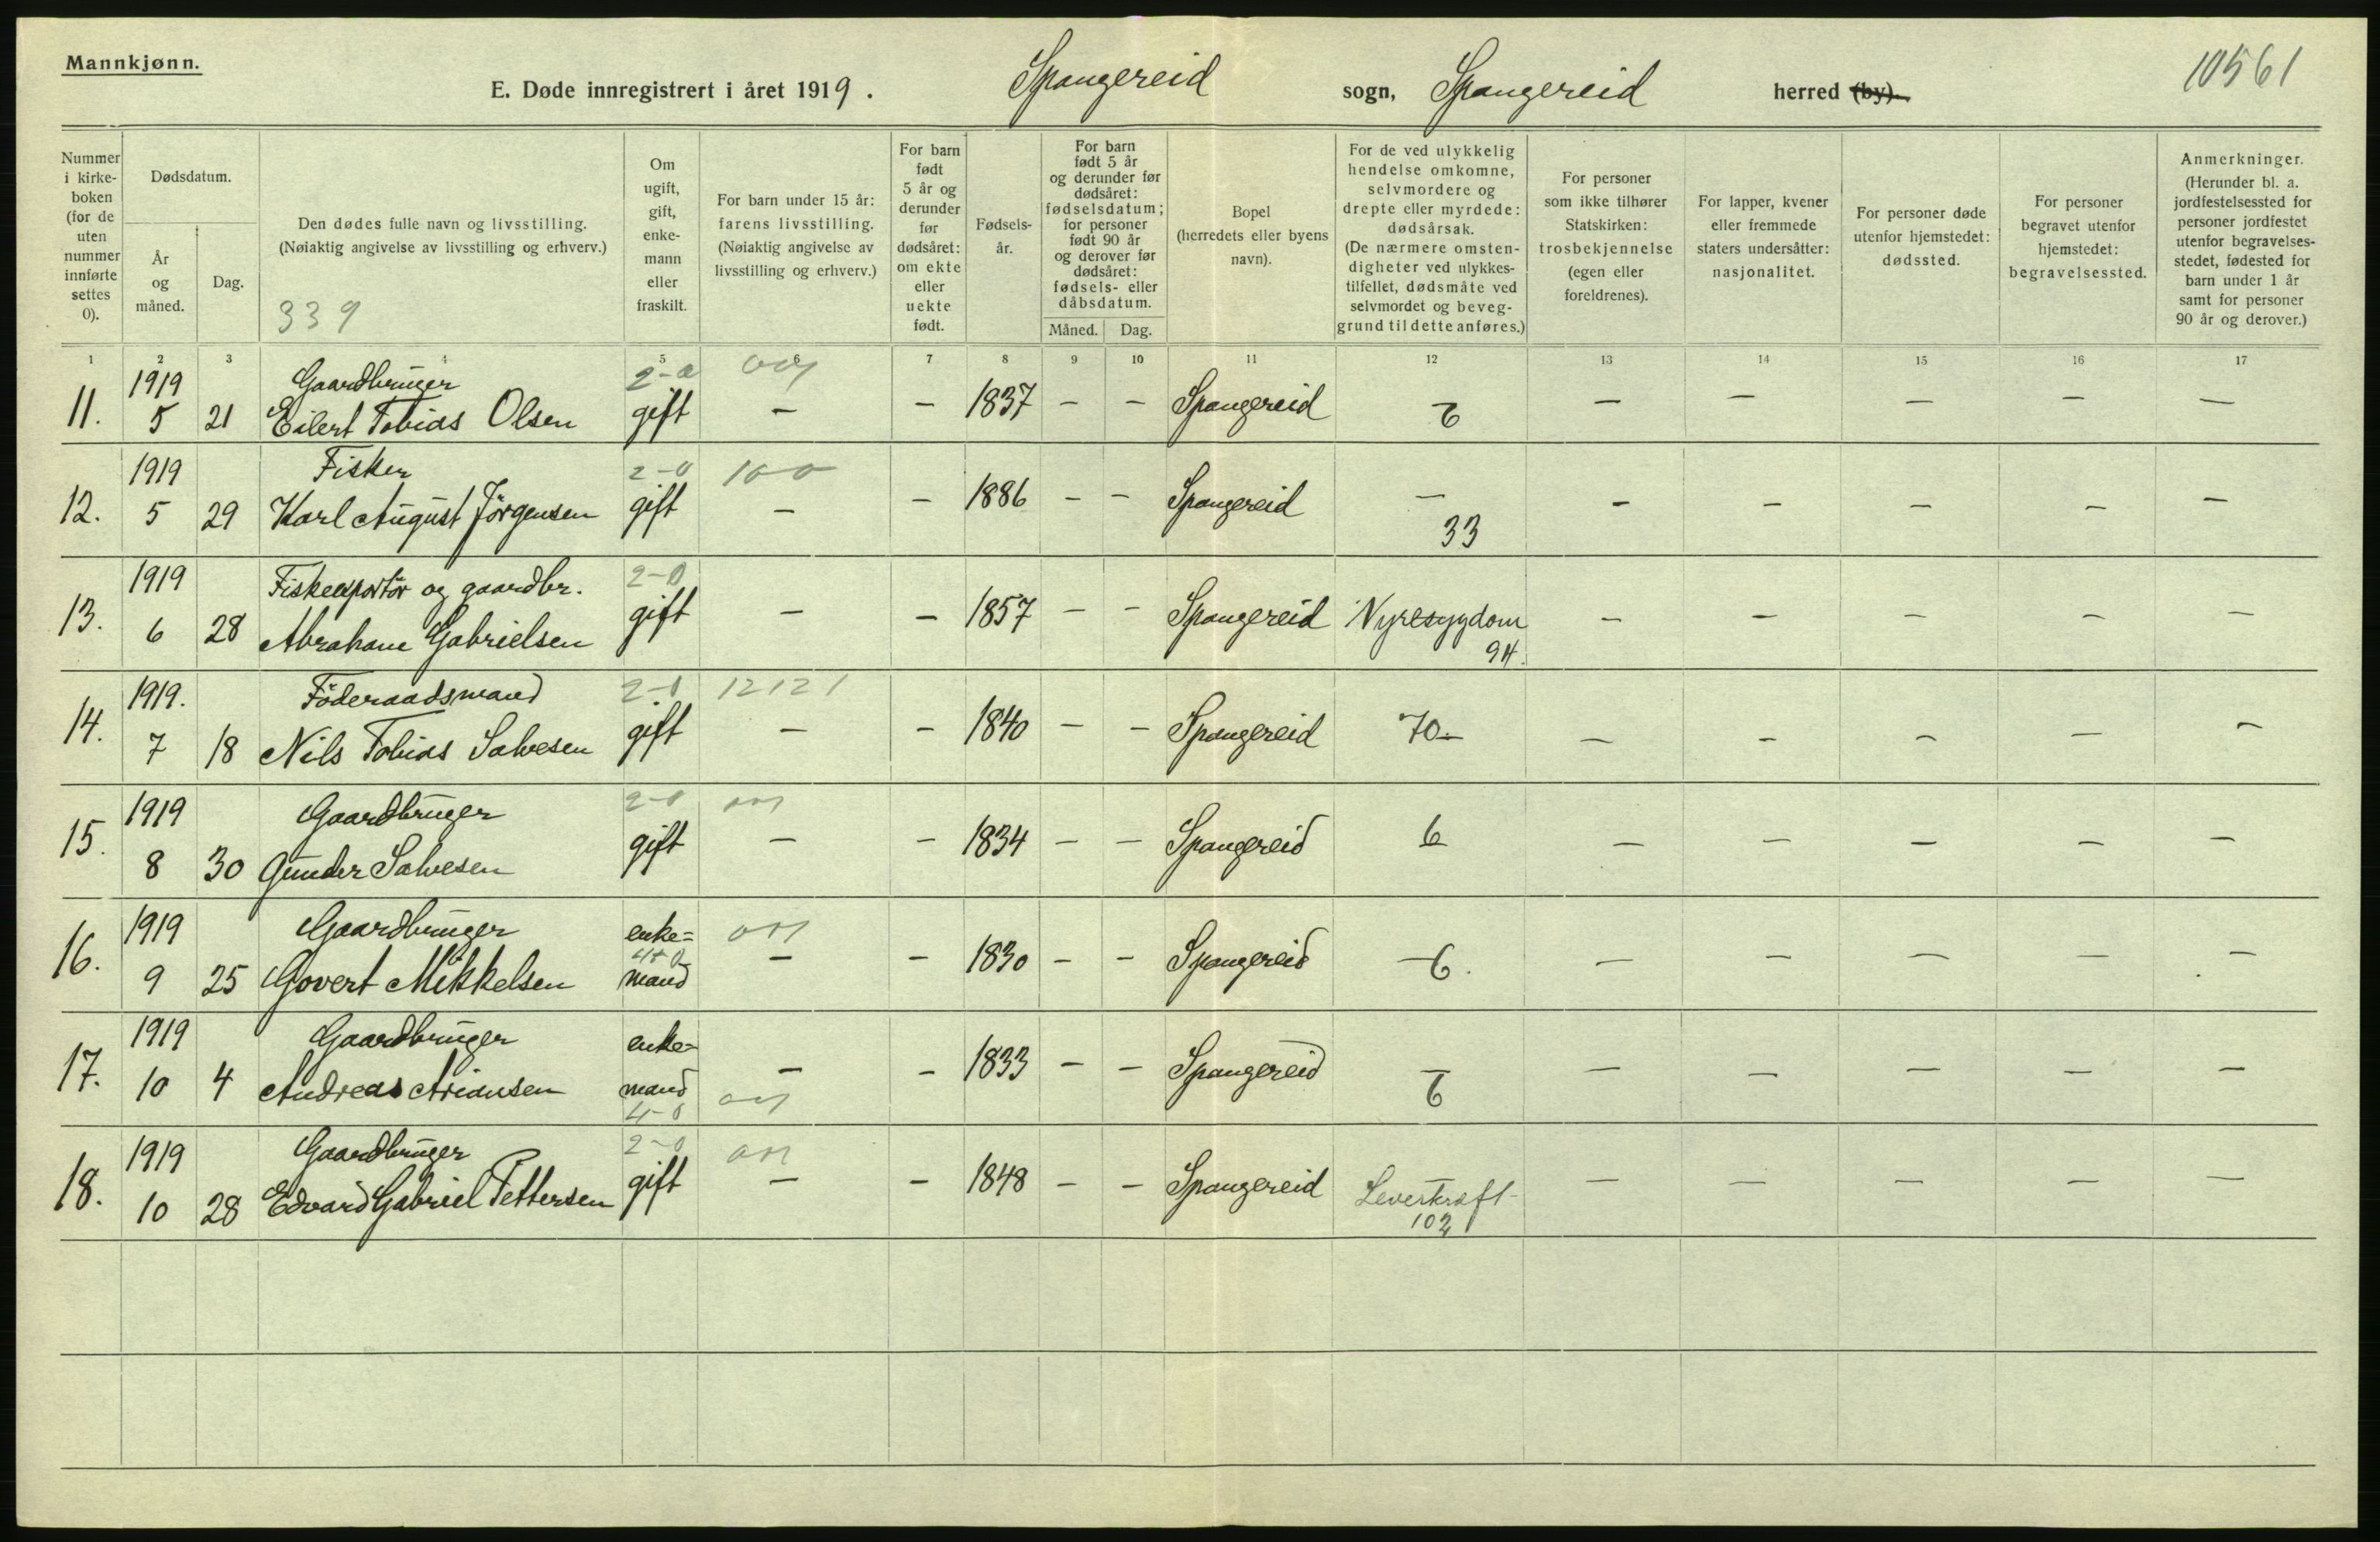 Mannkjønn.
E. Døde innregistrert i året 1919. Spangereid sogn, Spangereid herred (by).
10561
Nummer i kirkeboken (for de uten nummer innførte settes 0).
Dødsdatum.
År og måned.
Dag.
Den dødes fulle navn og livsstilling.
(Nøiaktig angivelse av livsstilling og erhverv.)
339
Om ugift, gift, enkemann eller fraskilt.
For barn under 15 år: farens livsstilling. (Nøiaktig angivelse av livsstilling og erhverv.)
For barn født 5 år og derunder før dødsåret: om ekte eller uekte født.
Fødselsår.
For barn født 5 år og derunder før dødsåret: fødselsdatum; for personer født 90 år og derover før dødsåret: fødsels- eller dåbsdatum.
Måned. Dag.
Bopel (herredets eller byens navn).
For de ved ulykkelig hendelse omkomne, selvmordere og drepte eller myrdede: dødsårsak. (De nærmere omstendigheter ved ulykkestilfellet, dødsmåte ved selvmordet og beveggrund til dette anføres.)
For personer som ikke tilhører Statskirken: trosbekjennelse (egen eller foreldrenes).
For lapper, kvener eller fremmede staters undersåtter: nasjonalitet.
For personer døde utenfor hjemstedet: dødssted.
For personer begravet utenfor hjemstedet: begravelsessted.
Anmerkninger. (Herunder bl. a. jordfestelsessted for personer jordfestet utenfor begravelsesstedet, fødested for barn under 1 år samt for personer 90 år og derover.)
1 2 3 4 5 6 7 8 9 10 11 12 13 14 15 16 17
1919 Gaardbruger 2-0
11. 5 21 Eilert Tobias Olsen gift - - 1837 - - Spangereid 6 - - - - -
1919 Fisker 2-0 100
12. 5 29 Karl August Jörgensen gift - - 1886 - - Spangereid - - - - - -
33
1919 Fiskeexportör og gaardbr. 2-0
13. 6 28 Abraham Gabrielsen gift - - 1857 - - Spangereid Nyresygdom - - - - -
94.
1919. Föderaadsmand 2-0 12121
14. 7 18 Nils Tobias Salvesen gift - - 1840 - - Spangereid 70 - - - - - -
1919 Gaardbruger 2-0
15. 8 30 Gunder Salvesen gift - - 1834 - - Spangereid 6 - - - - -
1919 Gaardbruger enke=
4-0
16. 9 25 Govert Mikkelsen mand - - 1830 - - Spangereid 6. - - - - -
1919 Gaardbruger enke=
17. 10 4 Andreas Ariansen mand - - 1833 - - Spangereid 6 - - - - -
4-0
1919 Gaardbruger 2-0
18. 10 28 Edvard Gabriel Pettersen gift - - 1848 - - Spangereid Leverkræft - - - - -
102